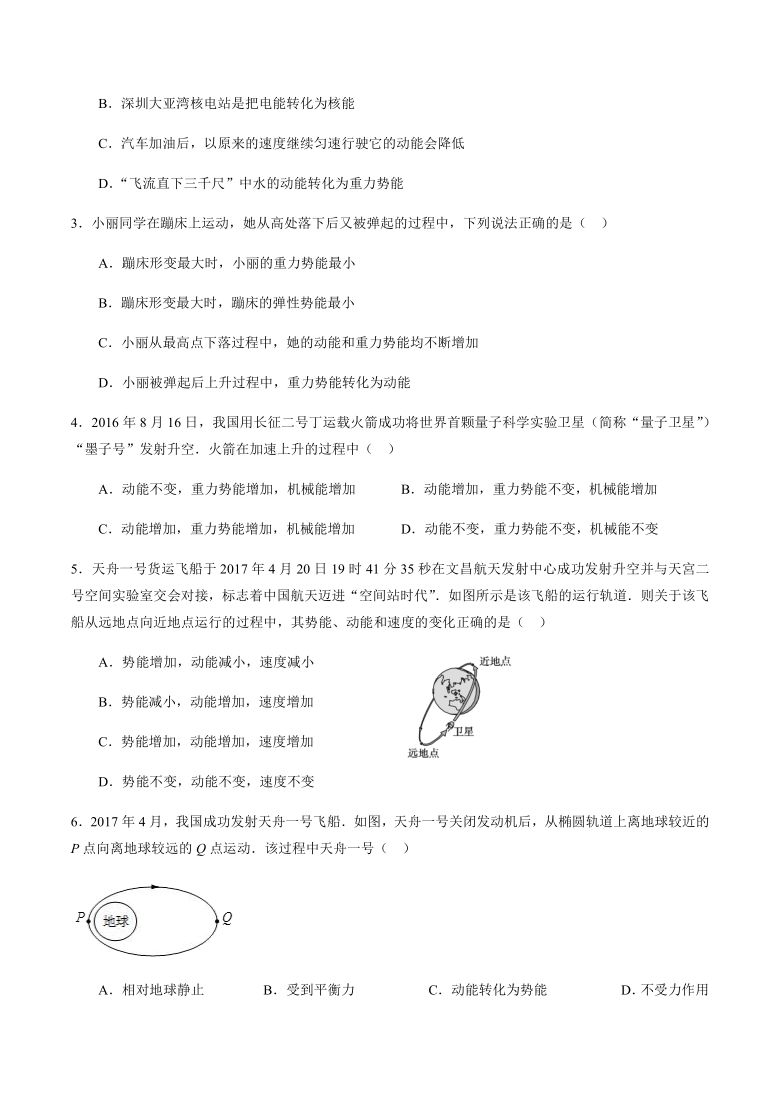 B．深圳大亚湾核电站是把电能转化为核能
C．汽车加油后，以原来的速度继续匀速行驶它的动能会降低
D．“飞流直下三千尺”中水的动能转化为重力势能
3．小丽同学在蹦床上运动，她从高处落下后又被弹起的过程中，下列说法正确的是（　）
A．蹦床形变最大时，小丽的重力势能最小
B．蹦床形变最大时，蹦床的弹性势能最小
C．小丽从最高点下落过程中，她的动能和重力势能均不断增加
D．小丽被弹起后上升过程中，重力势能转化为动能
4．2016 年 8 月 16 日，我国用长征二号丁运载火箭成功将世界首颗量子科学实验卫星（简称“量子卫星”）
“墨子号”发射升空．火箭在加速上升的过程中（　）
A．动能不变，重力势能增加，机械能增加 B．动能增加，重力势能不变，机械能增加
C．动能增加，重力势能增加，机械能增加 D．动能不变，重力势能不变，机械能不变
5．天舟一号货运飞船于 2017 年 4 月 20 日 19 时 41 分 35 秒在文昌航天发射中心成功发射升空并与天宫二
号空间实验室交会对接，标志着中国航天迈进“空间站时代”．如图所示是该飞船的运行轨道．则关于该飞
船从远地点向近地点运行的过程中，其势能、动能和速度的变化正确的是（　）
A．势能增加，动能减小，速度减小
B．势能减小，动能增加，速度增加
C．势能增加，动能增加，速度增加
D．势能不变，动能不变，速度不变
近地点
卫星
远地点
6．2017 年 4 月，我国成功发射天舟一号飞船．如图，天舟一号关闭发动机后，从椭圆轨道上离地球较近的
P 点向离地球较远的 Q 点运动．该过程中天舟一号（　）
P 地球 Q
A．相对地球静止 B．受到平衡力 C．动能转化为势能 D．不受力作用